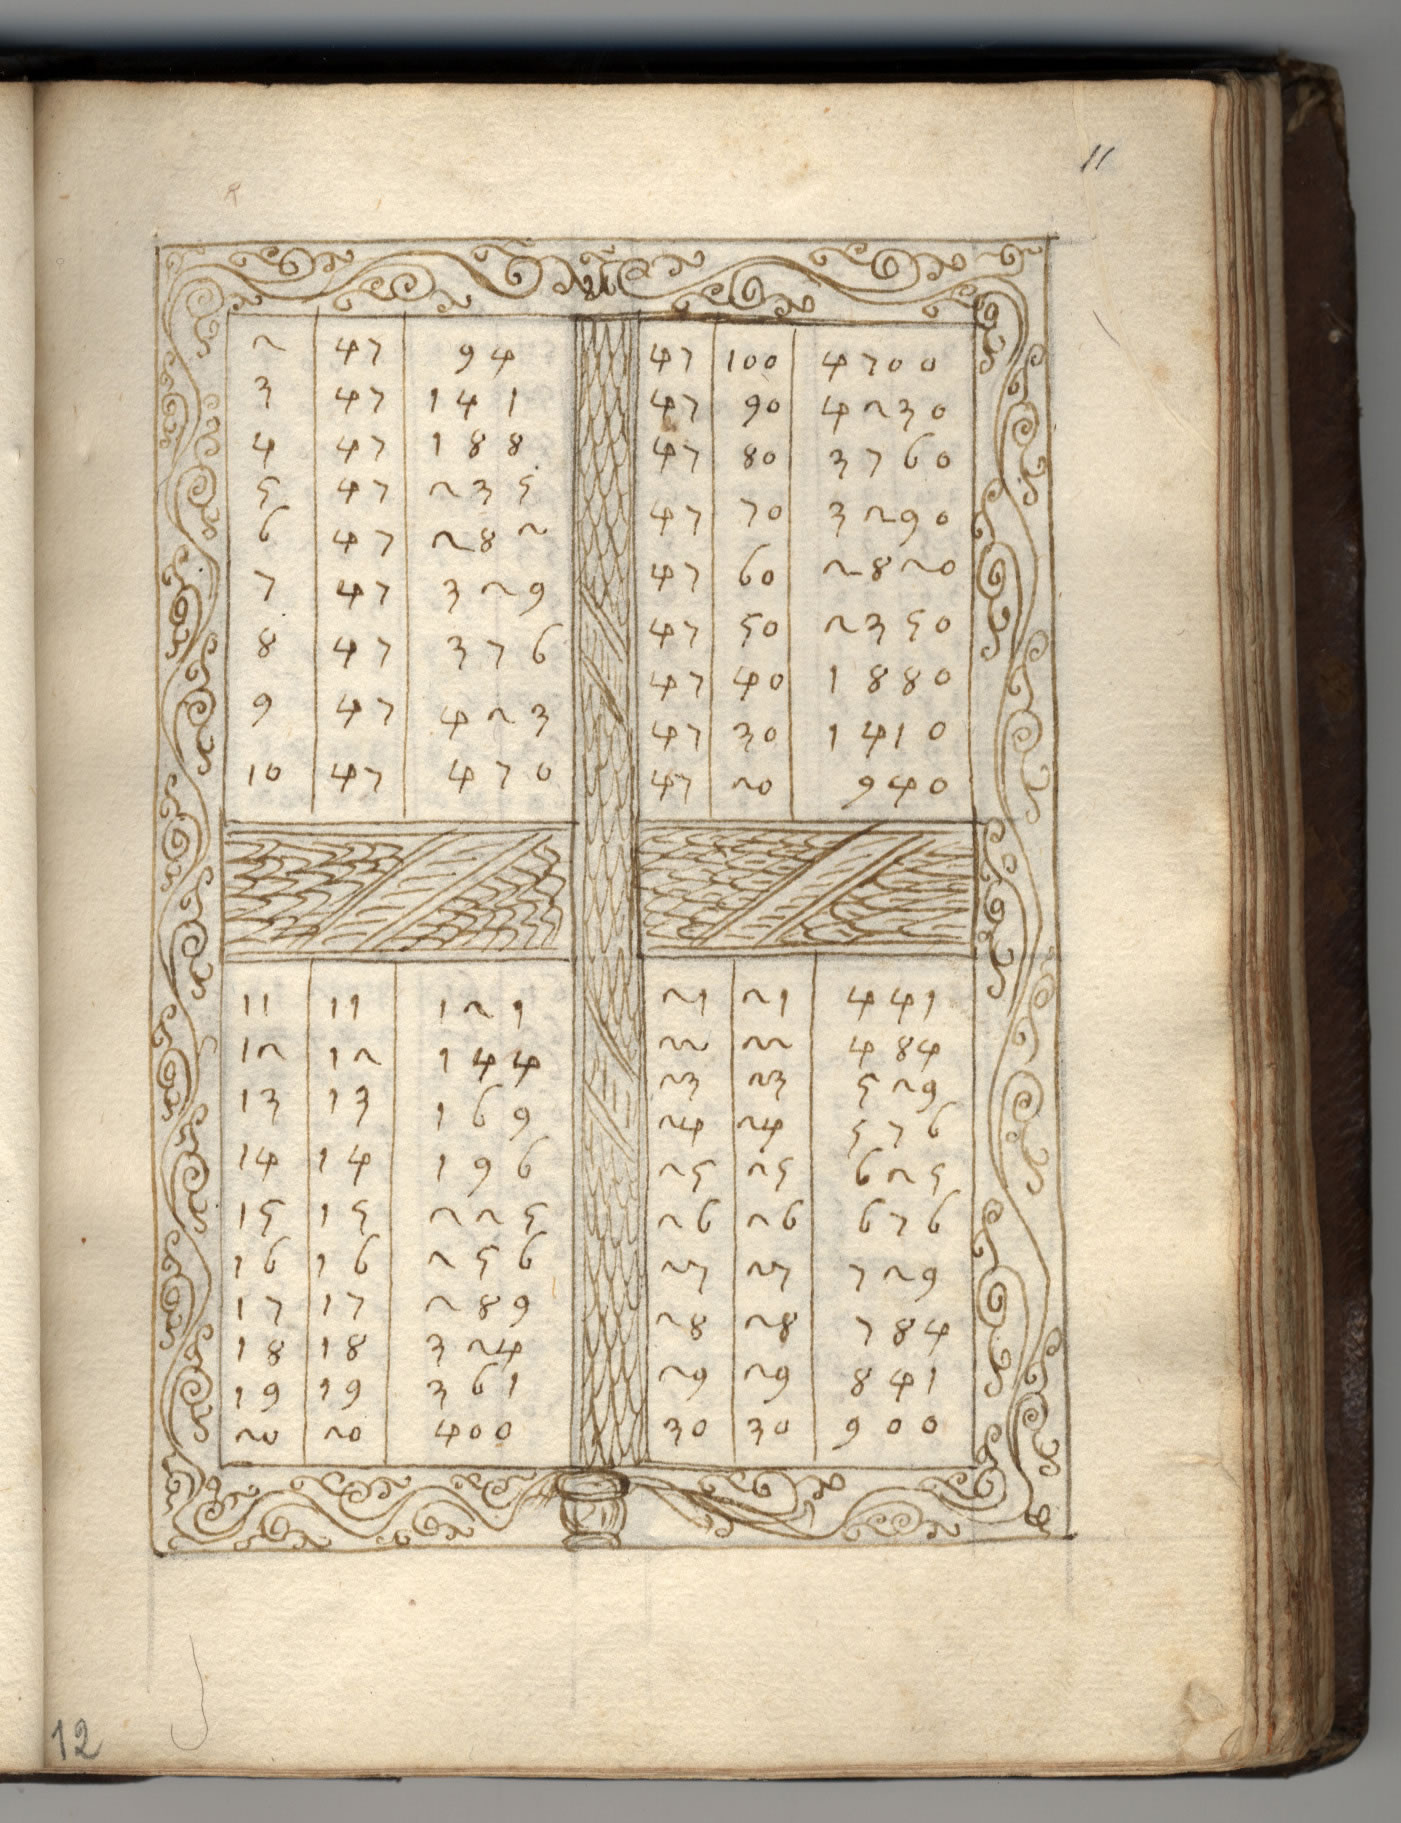 11
2 47 94
3 47 141
4 47 188
5 47 235
6 47 282
7 47 329
8 47 376
9 47 423
10 47 470
47 100 4700
47 90 4230
47 80 3760
47 70 3290
47 60 2820
47 50 2350
47 40 1880
47 30 1410
47 20 940
11 11 121
12 12 144
13 13 169
14 14 196
15 15 225
16 16 256
17 17 289
18 18 324
19 19 361
20 20 400
21 21 441
22 22 484
23 23 529
24 24 576
25 25 625
26 26 676
27 27 729
28 28 784
29 29 841
30 30 900
12